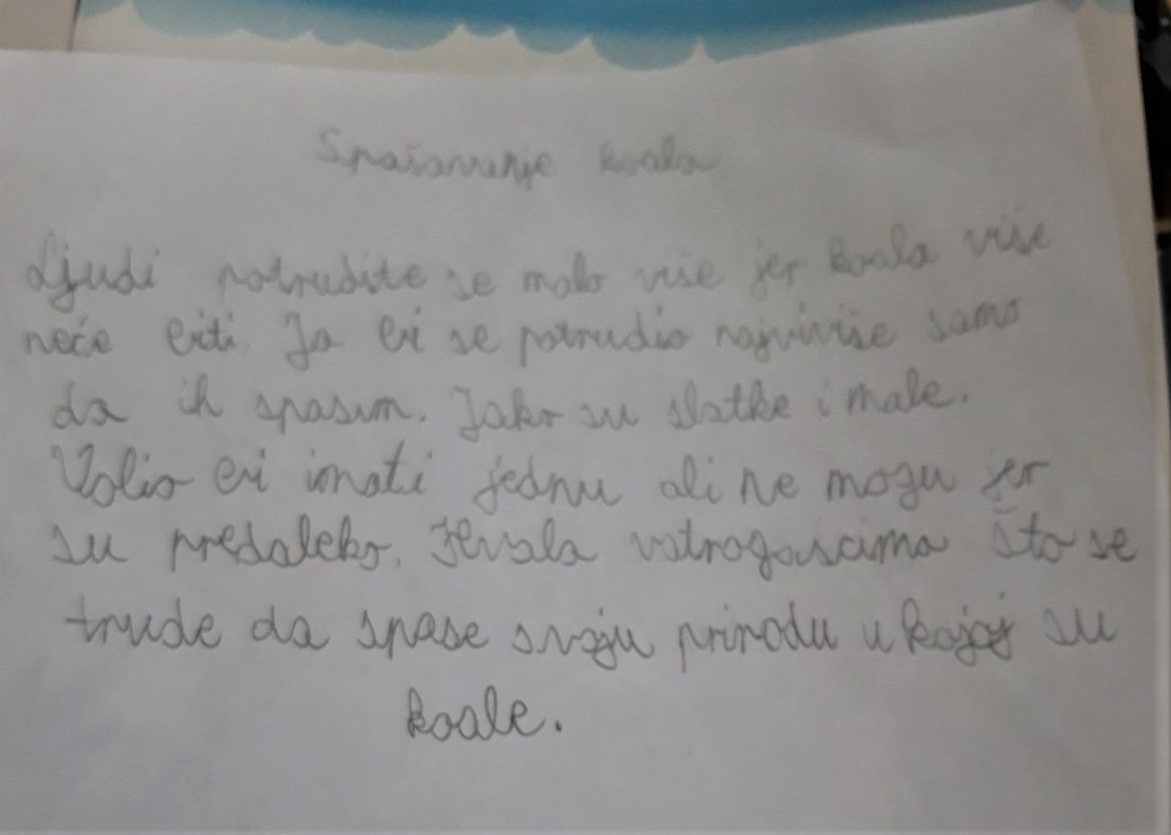 Spašavanje koala
Ljudi potrudite se malo više jer koala više
neće biti. Ja bi se potrudio najviviše samo
da ih spasim. Jako su slatke i male.
Volio bi imati jednu ali ne mogu jer
su predaleko. Hvala vatrogascima što se
trude da spase svoju prirodu u kojoj su
koale.